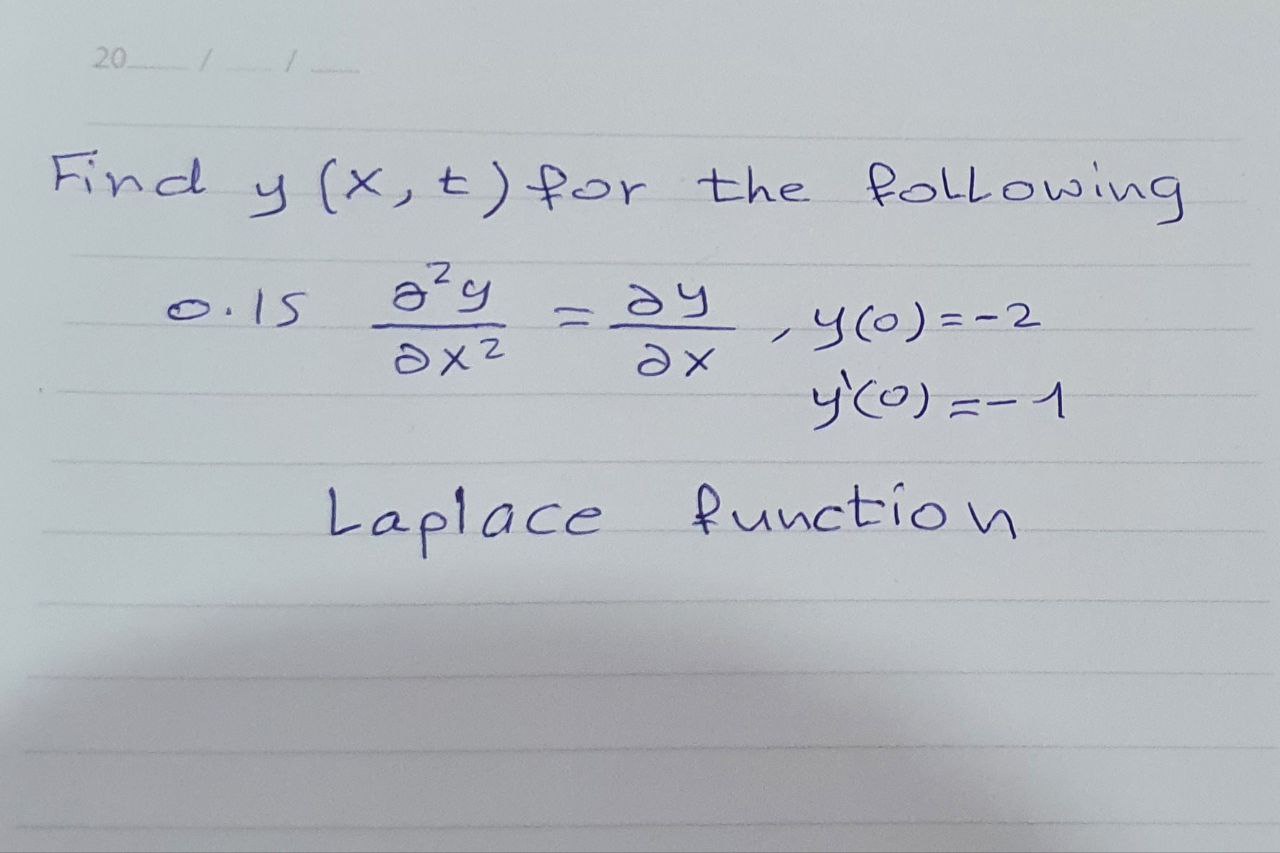 20___ / ___ / ___
Find y (x, t) for the following
0.15 ∂²y/∂x² = ∂y/∂x , y(0) = -2
y'(0) = -1
Laplace function